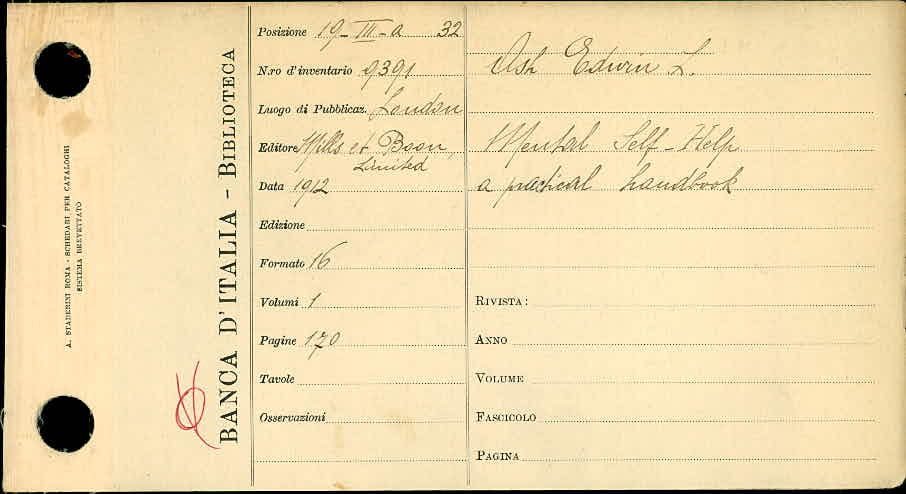 A. STADERINI ROMA - SCHEDARI PER CATALOGHI
SISTEMA BREVETTATO
BANCA D'ITALIA - BIBLIOTECA
Posizione 19-III-a 32
N.ro d'inventario 9391
Luogo di Pubblicaz. London
Editore Mills et Boon,
Limited
Data 1912
Edizione
Formato 16
Volumi 1
Pagine 170
Tavole
Osservazioni
Ash Edwin L.
Mental Self-Help
a practical handbook
RIVISTA:
ANNO
VOLUME
FASCICOLO
PAGINA